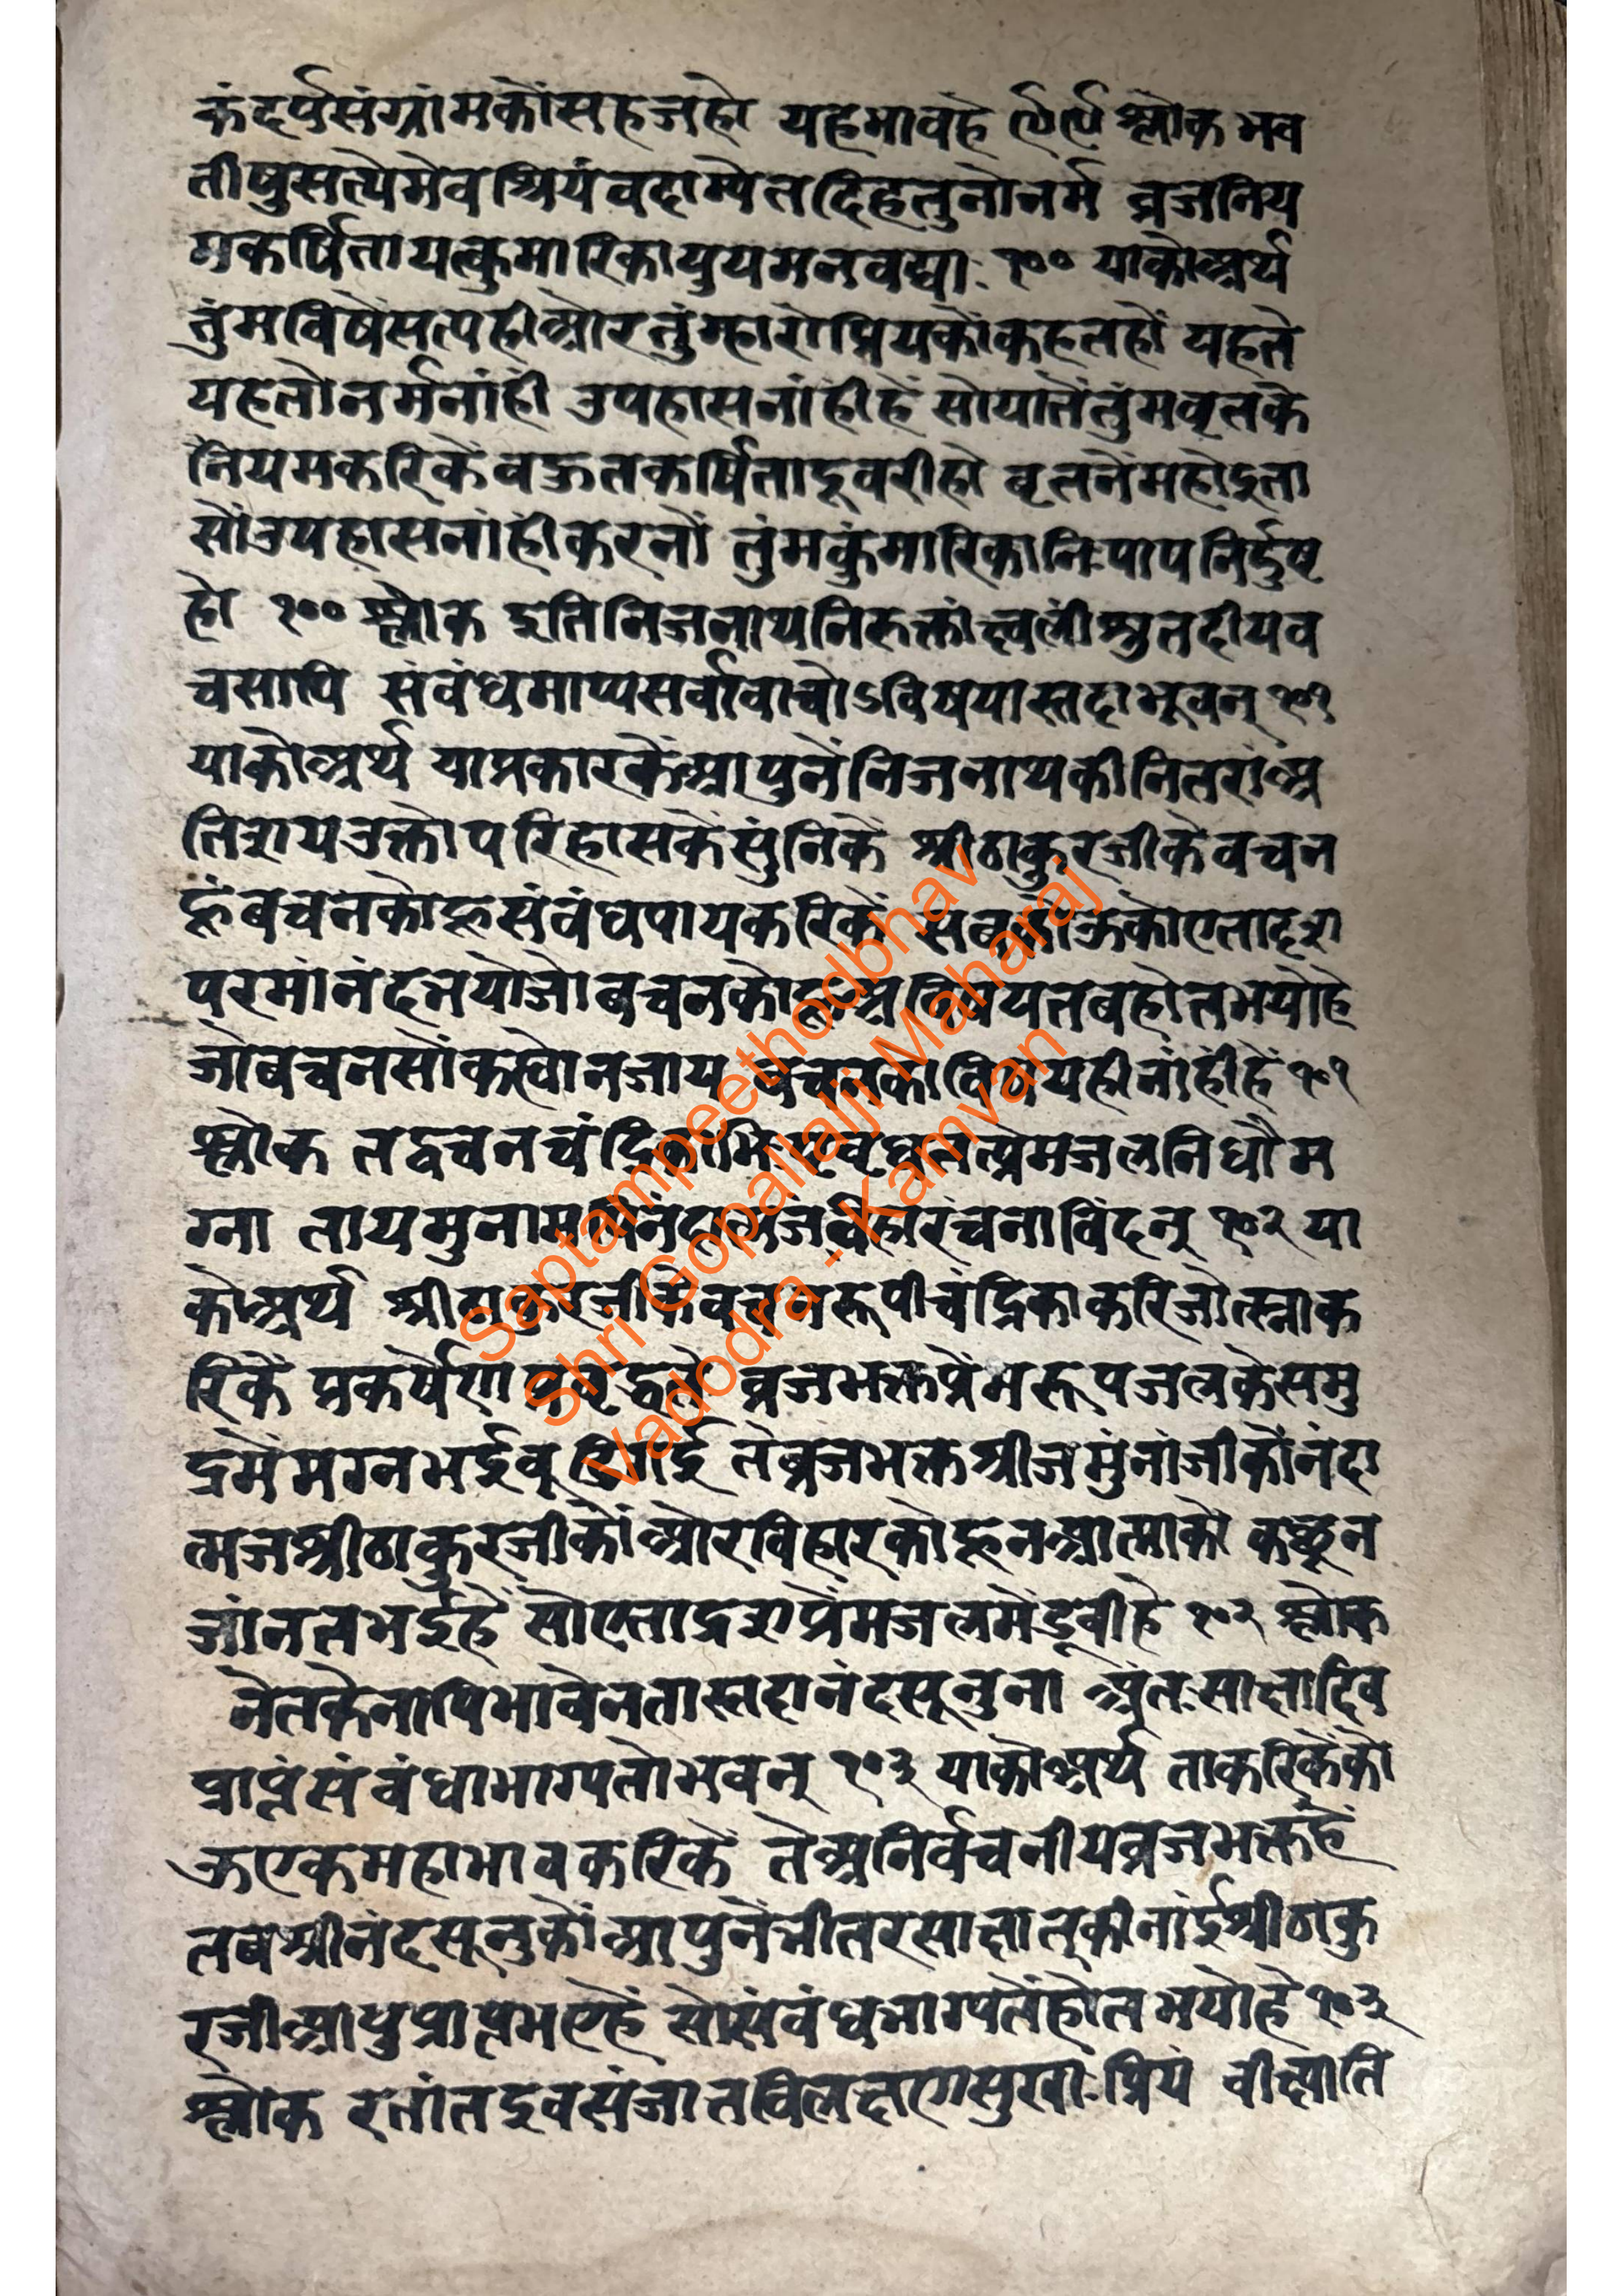 कंदर्पसंग्रांमकोंसहजहो यहभावहै ९९ श्लोक भव
तीषुसत्यैमेवप्रियंवदाम्येतदिहतुनोनर्म व्रजनिय
मकर्षितायत्कुमारिकायुयमनवद्याः १०० याकोअर्थ
तुंमविषैंसत्यहीओरतुंम्हारोप्रियकोंकहतहों यहते
यहतोनर्मनांहीं उपहासनांहींहें सोयातेंतुंमवृतके
नियमकरिकेंबऊतकर्षितादूबरीहो वृतनेंमहोइता
सोंउपहासनांहींकरनों तुंमकुंमारिकानिःपापनिर्दुष
हो १०० श्लोक इतिनिजनाथनिरुक्तां त्वलींश्रुतदीयव
चसापि संबंधमाप्यसर्वावाचोऽविषयास्तदाभूवन् १०१
याकोअर्थ याप्रकारकेंआपुनेंनिजनाथकीनितरांअ
तिशयउक्तोपरिहासकेंसुंनिकें श्रीठाकुरजीकेवचन
हूंबचनकोहूसंबंधपायकरिकें सबकोऊकोएतादृश
परमांनंदनयोजोबचनकोहूअविषयतबहोतभयोहे
जोबचनसोंकह्योनजाय बचनकोविषयहीनांहींहें १०१
श्लोक तद्वचनचंद्रिकाभिःप्रवृधतत्प्रेमजलनिधौम
ग्ना तायमुनामपिनंदात्मजविहारंचनाविंदन् १०२ या
कोअर्थ श्रीठाकुरजीकेवचनरूपीचंद्रिकाकरिजोत्स्नाक
रिकें प्रकर्षेणप्रवृद्धतें व्रजभक्तप्रेंमरूपजलकेसमु
द्रमेंमग्नभईबूडिगई तेंब्रजभक्तश्रीजमुंनांजीकोंनंदा
त्मजश्रीठाकुरजीकोंओरविहारकोहूनआत्माको कछून
जांनतभईहें सोएताद्रशप्रेंमजलमेंडूबीहे १०२ श्लोक
नेतकेनापिभावेनतास्तदानंदसूनुना अंतःसाक्षादिव
प्राप्तंसंबंधाभाग्यतोभवन् १०३ याकोअर्थ ताकरिकेंको
ऊएकमहाभावकरिकें तेअनिर्वचनीयव्रजभक्तहें
तबश्रीनंदसूनुकोंआपुनेंभीतरसाक्षात्कीनांईश्रीठाकु
रजीआपुप्राप्तभएहें सोसंबंधभाग्यतेंहोतभयोहे १०३
श्लोक रतांतइवसंजातविलक्षणसुखाःप्रियं वीक्ष्याति
Saptampeethodbhav
Shri Gopallalji Maharaj
Vadodra - Kamvan